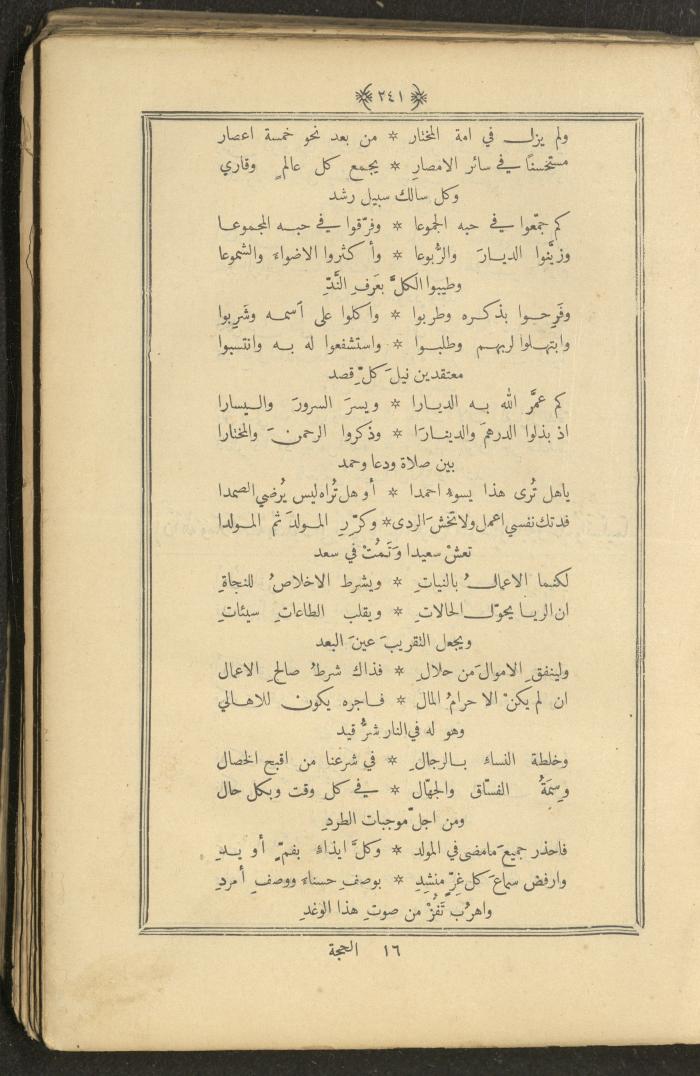 ٢٤١
ولم يزل في امة المختار * من بعد نحو خمسة اعصار
مستحسنًا في سائر الامصارِ * يجمع كل عالمٍ وقاري
وكل سالك سبيل رشد
كم جمّعوا في حبه الجموعا * وفرّقوا في حبه المجموعا
وزيَّنوا الديارَ والرُّبوعا * وأكثروا الاضواءَ والشموعا
وطيبوا الكلَّ بعَرفِ النَّدِّ
وفَرِحوا بذكره وطربوا * واكلوا على اَسمه وشَرِبوا
وابتهلوا لربهم وطلبوا * واستشفعوا له به وانتسبوا
معتقدين نيلَ كلّ قصد
كم عمَّر الله به الديارا * ويسرَ السرورَ واليسارا
اذ بذلوا الدرهمَ والدينارَا * وذكروا الرحمنَ والمختارا
بين صلاة ودعا وحمد
ياهل تُرى هذا يسوءِ احمدا * أو هل تُراه ليس يُرضي الصمدا
فدتك نفسي اعمل ولا تخشَ الردى * وكرّرِ المولدَ ثم المولدا
تعشْ سعيدا وَتَمُتْ في سعد
لكنما الاعمالُ بالنياتِ * ويشرط الاخلاصُ للنجاةِ
ان الريا يحوّل الحالاتِ * ويقلب الطاعاتِ سيئاتِ
ويجعل التقريبَ عينَ البعد
ولينفقِ الاموالَ من حلالِ * فذاك شرطُ صالحِ الاعمال
ان لم يكنْ الا حرامُ المال * فاجره يكون للاهالي
وهو له في النار شرُّ قيد
وخلطة النساءِ بالرجالِ * في شرعنا من اقبح الخصال
وسِمَةُ الفسّاق والجهّال * في كل وقت وبكل حال
ومن اجلّ موجبات الطردِ
فاحذر جميعَ مامضى في المولد * وكلَّ ايذاءٍ بفمٍّ أو يدِ
وارفض سماعَ كل غِرٍّ منشِدِ * بوصفِ حسناءَ ووصفِ أمردِ
واهرُب تَفُزْ من صوتِ هذا الوغدِ
١٦ الحجة